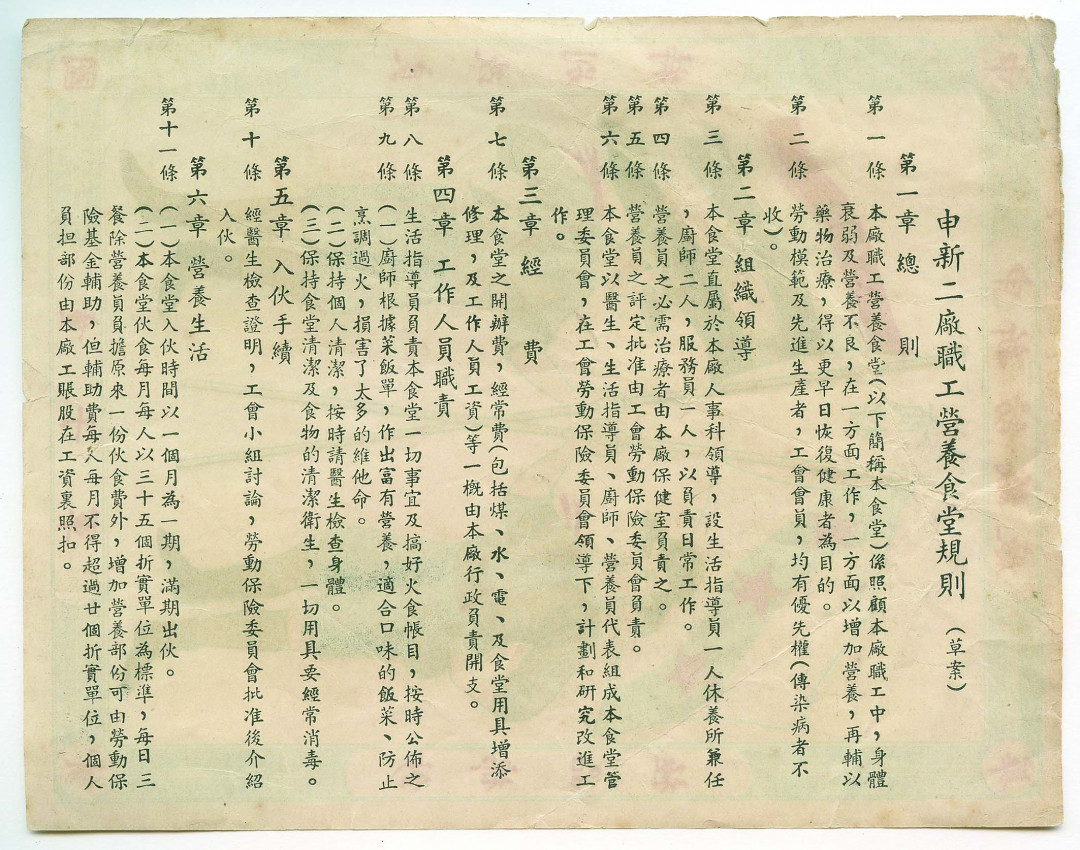 申新二廠職工營養食堂規則（草案）
第一章 總則
第一條 本廠職工營養食堂（以下簡稱本食堂）係照顧本廠職工中，身體
衰弱及營養不良，在一方面工作，一方面以增加營養，再輔以
藥物治療，得以更早日恢復健康者為目的。
第二條 勞動模範及先進生產者，工會會員，均有優先權（傳染病者不
收）。
第二章 組織領導
第三條 本食堂直屬於本廠人事科領導，設生活指導員一人休養所兼任
，廚師二人，服務員一人，以負責日常工作。
第四條 營養員之必需治療者由本廠保健室負責之。
第五條 營養員之評定批准由工會勞動保險委員會負責。
第六條 本食堂以醫生、生活指導員、廚師、營養員代表組成本食堂管
理委員會，在工會勞動保險委員會領導下，計劃和研究改進工
作。
第三章 經費
第七條 本食堂之開辦費，經常費（包括煤、水、電、及食堂用具增添
修理，及工作人員工資）等一概由本廠行政負責開支。
第四章 工作人員職責
第八條 生活指導員負責本食堂一切事宜及搞好火食帳目，按時公佈之
第九條 （一）廚師根據菜飯單，作出富有營養，適合口味的飯菜、防止
烹調過火，損害了太多的維他命。
（二）保持個人清潔，按時請醫生檢查身體。
（三）保持食堂清潔及食物的清潔衛生，一切用具要經常消毒。
第五章 入伙手續
第十條 經醫生檢查證明，工會小組討論，勞動保險委員會批准後介紹
入伙。
第六章 營養生活
第十一條 （一）本食堂入伙時間以一個月為一期，滿期出伙。
（二）本食堂伙食每月每人以三十五個折實單位為標準，每日三
餐除營養員負擔原來一份伙食費外，增加營養部份可由勞動保
險基金輔助，但輔助費每人每月不得超過廿個折實單位，個人
負担部份由本廠工賬股在工資裏照扣。